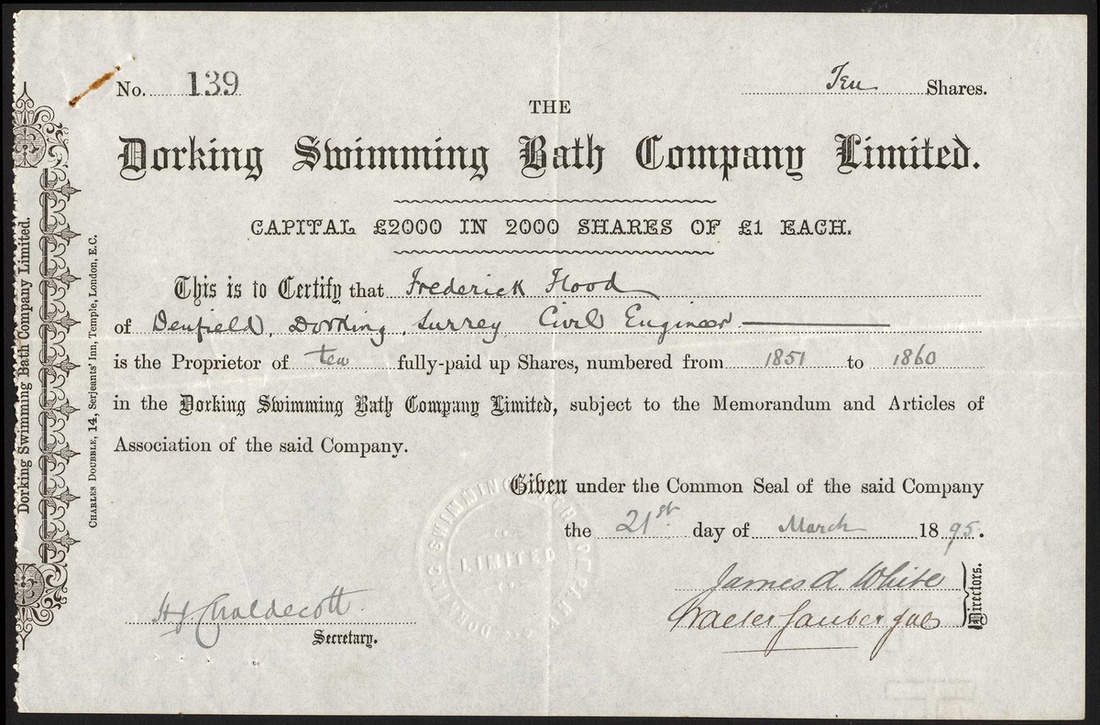 No. 139
Ten Shares.
THE
Dorking Swimming Bath Company Limited.
CAPITAL £2000 IN 2000 SHARES OF £1 EACH.
This is to Certify that Frederick Flood
of Denfield, Dorking, Surrey Civil Engineer
is the Proprietor of ten fully-paid up Shares, numbered from 1851 to 1860
in the Dorking Swimming Bath Company Limited, subject to the Memorandum and Articles of
Association of the said Company.
Given under the Common Seal of the said Company
the 21st day of March 1895.
James A White
Walter
Directors.
H J Chaldecott
Secretary.
Dorking Swimming Bath Company Limited.
CHARLES DOUBBLE, 14, Serjeants' Inn, Temple, London, E.C.
SWIMMING
LIMITED